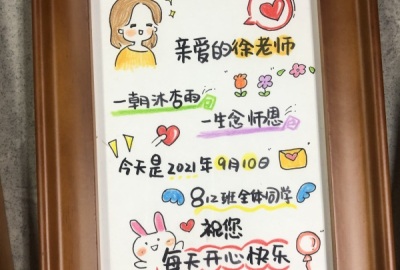 亲爱的徐老师
一朝沐杏雨
一生念师恩
今天是2021年9月10日
812班全体同学
祝您
每天开心快乐